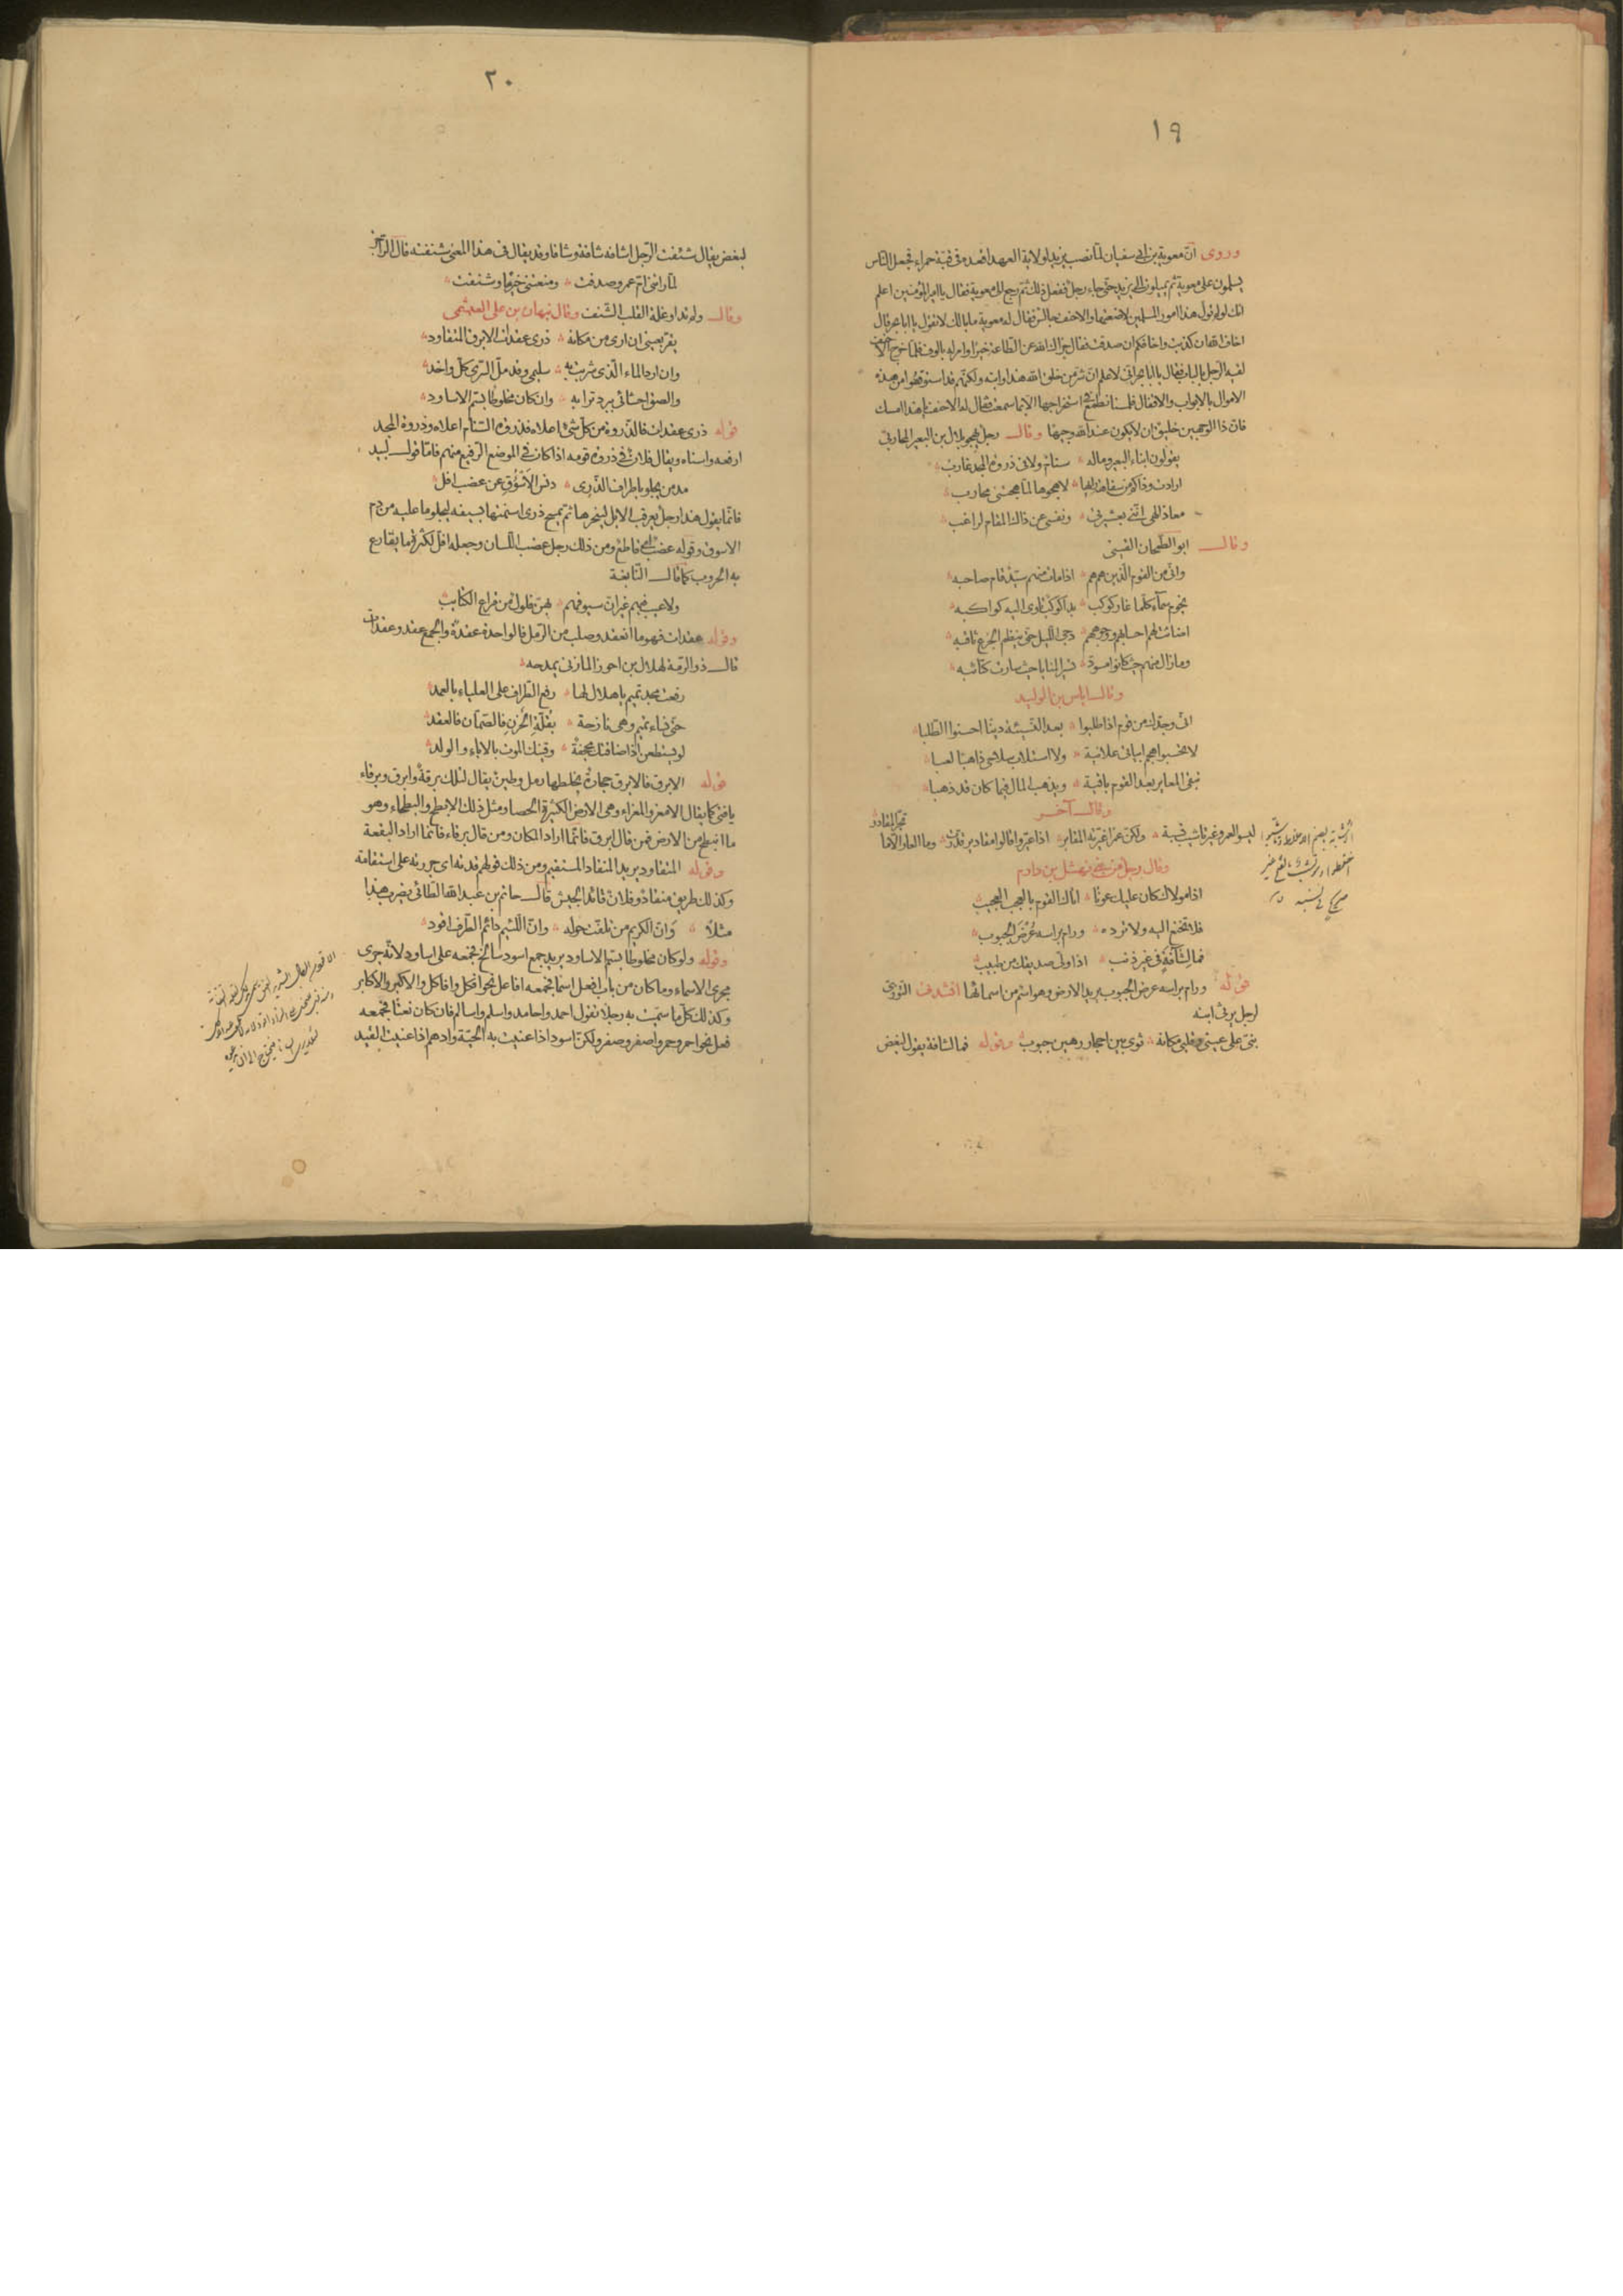 ١٩
وروى ان معوية بن ابى سفيان لما نصب يزيد لولاية العهد اقعده فى قبة حمراء فجعل الناس
يسلمون على معوية ثم يميلون الى يزيد حتى جاء رجل ففعل ذلك ثم رجع الى معوية فقال يا امير المؤمنين اعلم
انك لو لم تول هذا امور المسلمين لاضعتها والاحنف جالس فقال له معوية ما بالك لا تقول يا ابا بحر قال
اخاف الله ان كذبت واخافكم ان صدقت فقال جزاك الله عن الطاعة خيرا وامر له بالوف فلما خرج الاحنف
لقيه الرجل بالباب فقال يا ابا بحر انى لاعلم ان شر من خلق الله هذا وابنه ولكنهم قد استوثقوا من هذه
الاموال بالابواب والاقفال فلسنا نطمع فى استخراجها الا بما سمعت فقال له الاحنف يا هذا امسك
فان ذا الوجهين خليق ان لا يكون عند الله وجيها وقال رجل يهجو بلال بن البعير المحاربى
يقولون ابناء البعير وماله سنام ولا فى ذروة المجد غارب
ارادت وذاكم من سفاهة رايها لاهجوها لما هجتنى محارب
معاذ الهى اننى بعشيرتى ونفسى عن ذاك المقام لراغب
وقال ابو الطمحان القينى
وانى من القوم الذين هم هم اذا مات منهم سيد قام صاحبه
نجوم سماء كلما غار كوكب بدا كوكب تاوى اليه كواكبه
اضاءت لهم احسابهم ووجوههم دجى الليل حتى ينظم الجزع ثاقبه
وما زال منهم حيث كانوا مسود تسير المنايا حيث سارت كتائبه
وقال اياس بن الوليد
انى وجدك من قوم اذا طلبوا بعد النسيئة دينا احسنوا الطلبا
لا تحسبوا هجم ابياتى علانية ولا استلاب سلاحى ذاهبا لعبا
تبقى المعاير بعد القوم باقية ويذهب المال فيما كان قد ذهبا
وقال آخر
لبسوا لعمرو غير تاشيب نسبة ولكن عمرا غيرته المقابر اذا عيروا قالوا مقادير قدرت وما العار الا ما
تجر المقادر
وقال رجل من بنى نهشل بن دارم
اذا مولاك كان عليك عونا اتاك القوم بالعجب العجيب
فلا تخنع اليه ولا ترده ورام براسه عرض الجبوب
فما لشآفة فى غير ذنب اذا ولى صديقك من طبيب
قوله ورام براسه عرض الجبوب يريد الارض وهو اسم من اسمائها انشدنى التوزى
لرجل يرثى ابنه
بنى على عينى وقلبى مكانه ثوى بين احجار رهين جبوب وقوله فما لشآفة يقول لبغض
٢٠
لبغض يقال شئفت الرجل اشافه شافة وشافا وقد يقال فى هذا المعنى شنفته قال الراجز
لما راتنى ام عمرو صدفت ومنعتنى خيرها وشنفت
وقال ولم تداو غلة القلب الشنف وقال نبهان بن على العبشمى
يقر بعينى ان ارى من مكانه ذرى عقدات الابرق المتقاود
وان ارد الماء الذى شربت به سليمى وقد مل السرى كل واخد
والصق احشائى ببرد ترابه وان كان مخلوطا بسم الاساود
قوله ذرى عقدات فالذروة من كل شئ اعلاه فذروة السنام اعلاه وذروة المجد
ارفعه واسناه ويقال فلان فى ذروة قومه اذا كان فى الموضع الرفيع منهم فاما قول لبيد
مدمن يجلو باطراف الذرى دنس الاسؤق عن عضب افل
فانما يقول هذا رجل يعرقب الابل لينحرها ثم يمسح ذرى اسنمتها بسيفه ليجلو ما عليه من دم
الاسوق وقوله عضب اى قاطع ومن ذلك رجل عضب اللسان وجعله افل لكثرة ما يقارع
به الحروب كما قال النابغة
ولا عيب فيهم غير ان سيوفهم بهن فلول من قراع الكتائب
وقوله عقدات فهو ما انعقد وصلب من الرمل فالواحدة عقدة والجمع عقد وعقدات
قال ذو الرمة لهلال بن احوز المازنى يمدحه
رفعت مجد تميم يا هلال لها رفع الطراف على العلياء بالعمد
حتى نساء تميم وهى نازحة بقلة الحزن فالصمان فالعقد
لو يستطعن اذا ضافتك مجحفة وقينك الموت بالآباء والولد
قوله الابرق فالابرق حجارة يخلطها رمل وطين يقال لتلك برقة وابرق وبرقاء
يا فتى كما يقال الامعز والمعزاء وهى الارض الكثيرة الحصا ومثل ذلك الابطح والبطحاء وهو
ما انبطح من الارض فمن قال ابرق فانما اراد المكان ومن قال برقاء فانما اراد البقعة
وقوله المتقاود يريد المنقاد المستقيم ومن ذلك قولهم قدته اى جررته على استقامة
وكذلك طريق منقاد وفلان قائد الجيش قال حاتم بن عبد الله الطائى يضرب هذا
مثلا وان الكريم من تلفت حوله وان اللئيم دائم الطرف اقود
وقوله ولو كان مخلوطا بسم الاساود يريد جمع اسود سالخ فجمعه على اساود لانه جرى
مجرى الاسماء وما كان من باب افعل اسما فجمعه افاعل نحو افكل وافاكل والاكبر والاكابر
وكذلك كل ما سميت به رجلا تقول احمد واحامد واسلم واسالم فان كان نعتا فجمعه
فعل نحو احمر وحمر واصفر وصفر ولكن اسود اذا عنيت به الحية وادهم اذا عنيت القيد